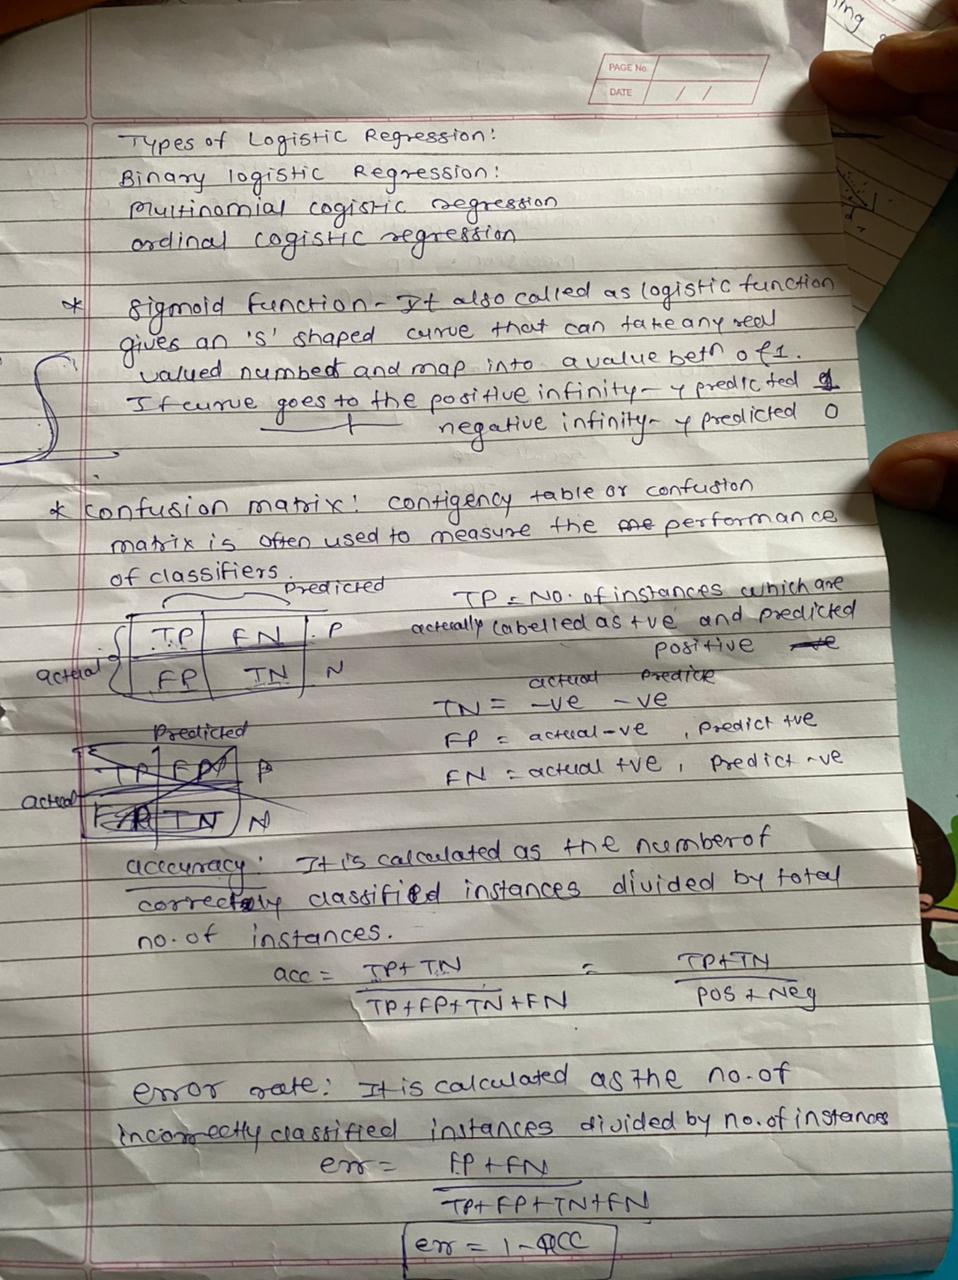 ing
PAGE No.
DATE / /
Types of Logistic Regression:
Binary logistic Regression:
Multinomial logistic regression
ordinal logistic regression
* Sigmoid function - It also called as logistic function
gives an 's' shaped curve that can take any real
valued numbed and map into a value betn 0 & 1.
If curve goes to the positive infinity - y predicted 1
negative infinity - y predicted 0
* Confusion matrix: contigency table or confusion
matrix is often used to measure the performance
of classifiers.
Predicted
TP FN P
actual FP TN N
TP = No. of instances which are
acterally labelled as +ve and predicted
positive
actual predice
TN = -ve -ve
FP = actual -ve , Predict +ve
FN = actual +ve , Predict -ve
Predicted
TP P
actual TN N
accuracy: It is calculated as the number of
correctly classified instances divided by total
no. of instances.
acc = TP+TN / TP+FP+TN+FN = TP+TN / Pos + Neg
error rate: It is calculated as the no. of
incorrectly classified instances divided by no. of instances
err = FP+FN / TP+FP+TN+FN
err = 1-acc